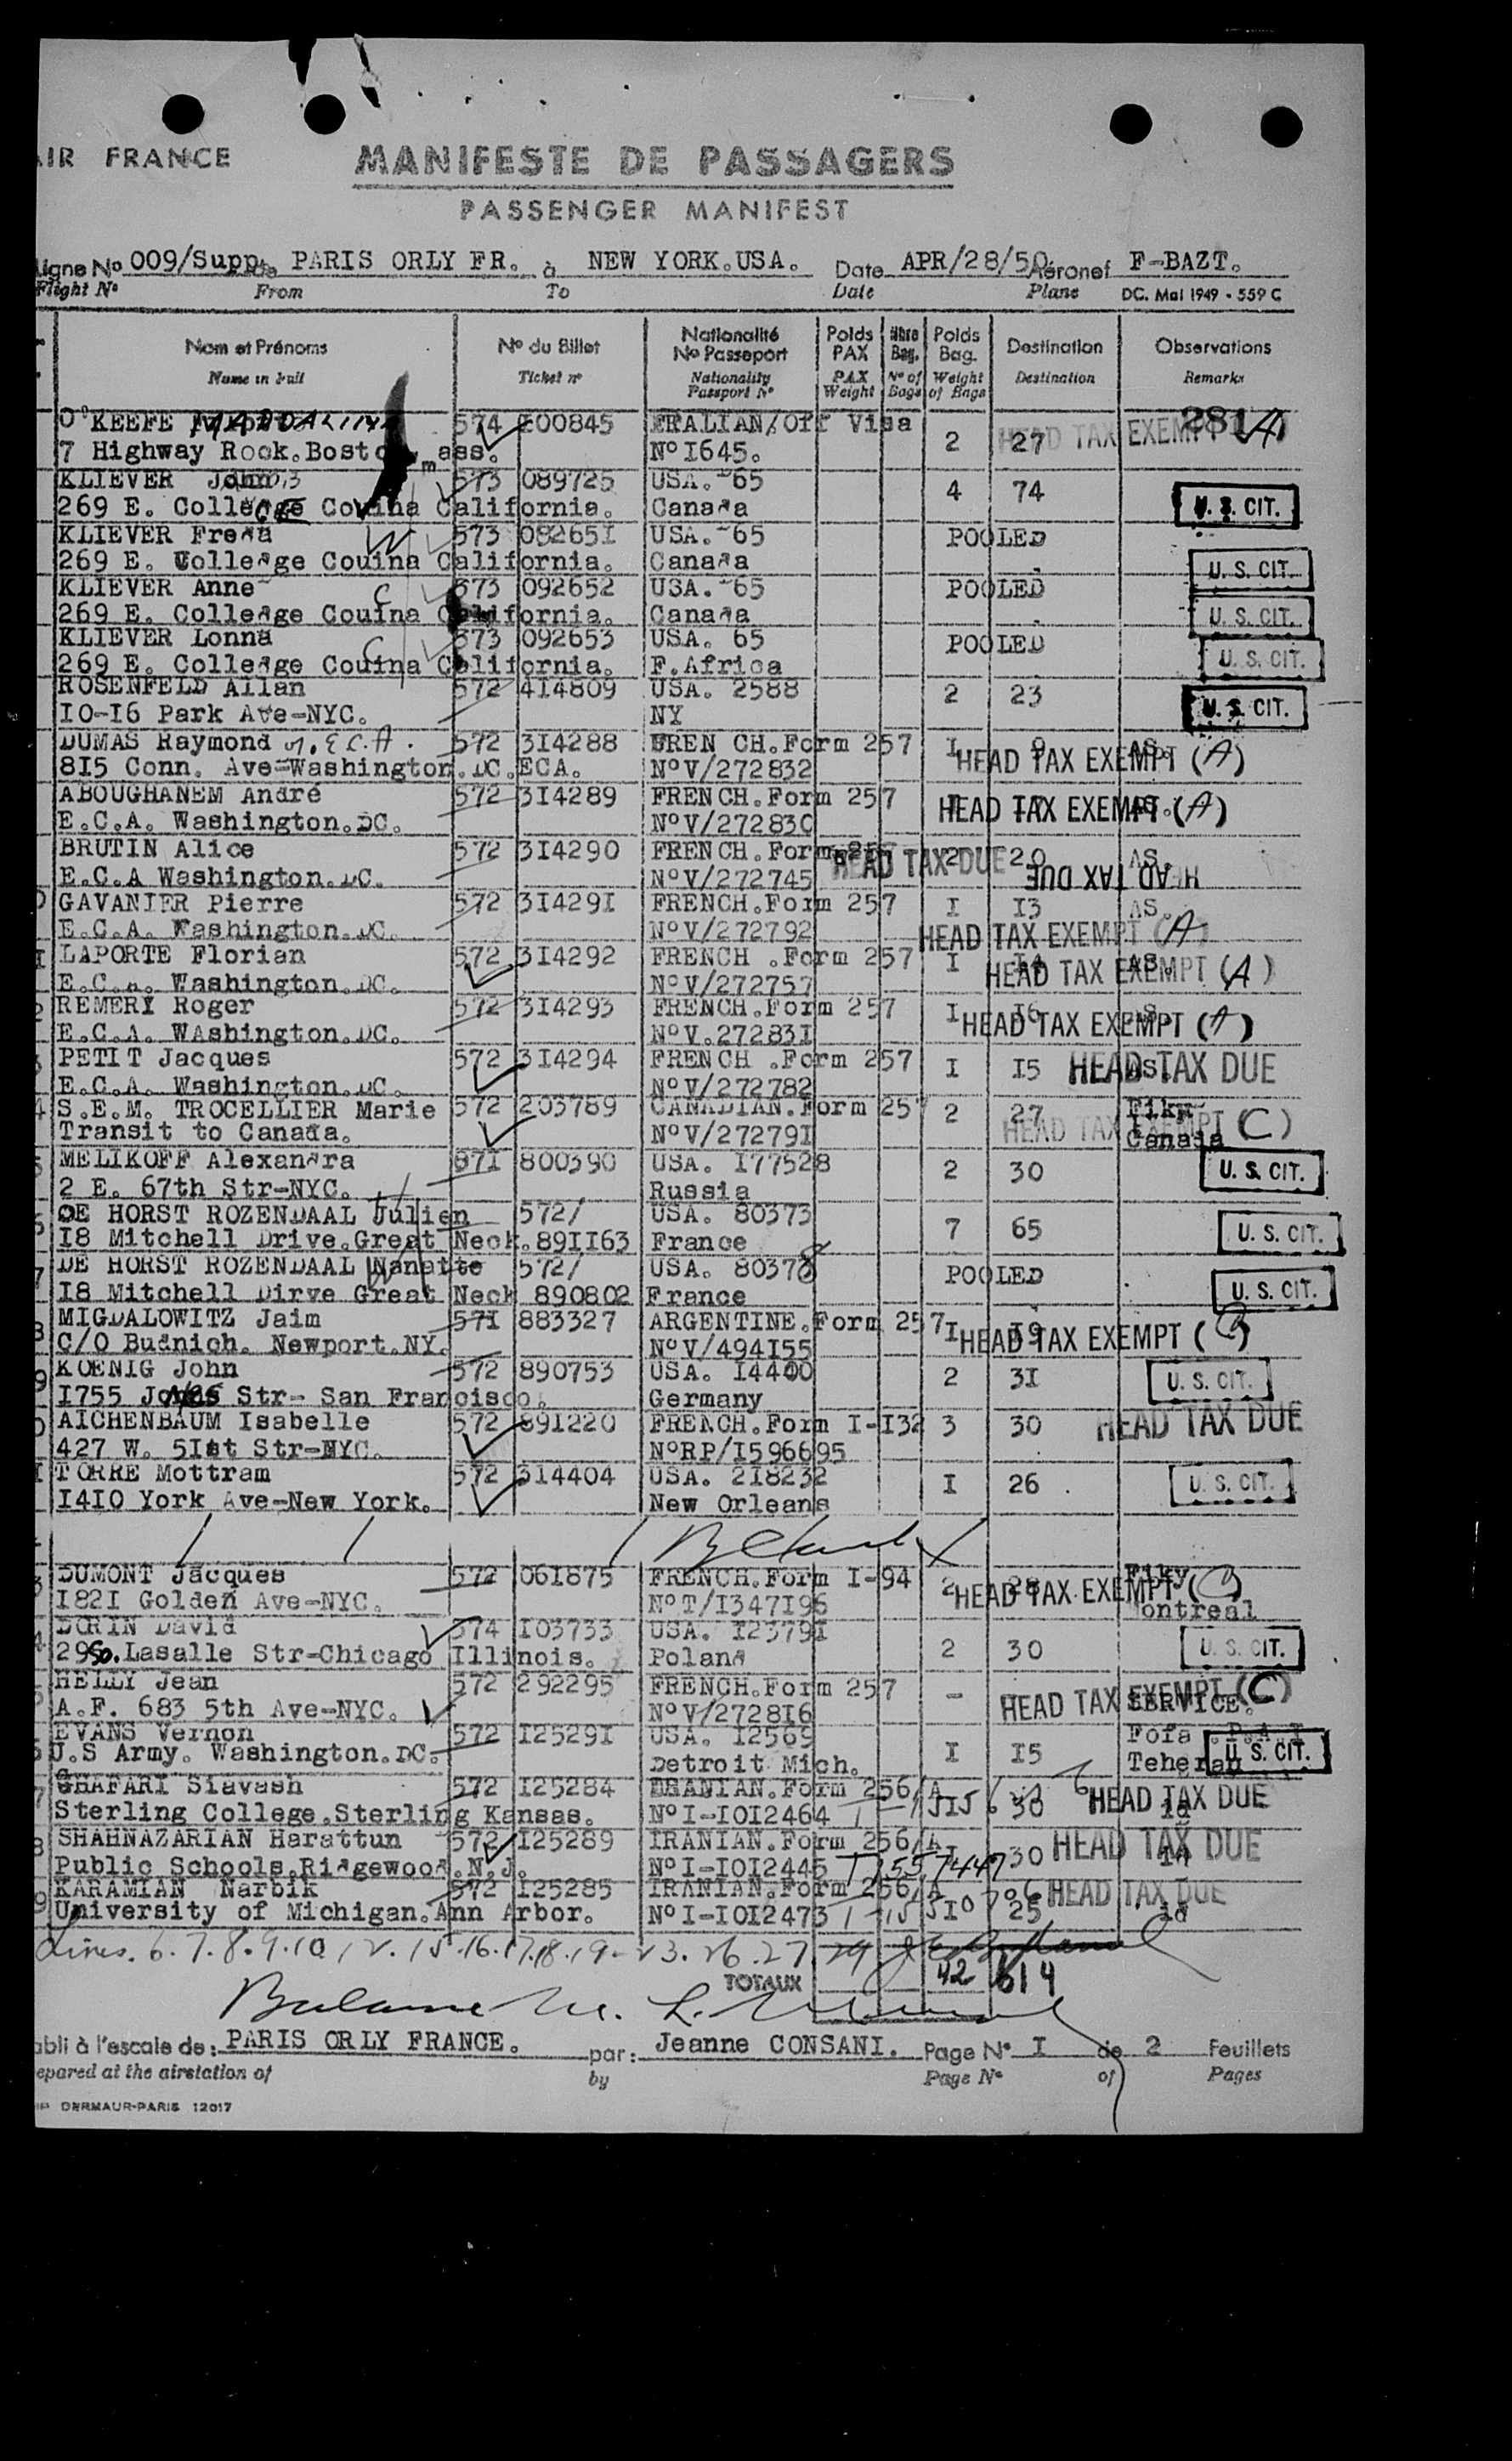 AIR FRANCE
MANIFESTE DE PASSAGERS
PASSENGER MANIFEST
Ligne No 009/Supp. de PARIS ORLY FR. à NEW YORK.USA. Date APR/28/50 Aéronef F-BAZT.
Flight No From To Date Plane DC. Mai 1949 - 559 C
Nom et Prénoms No du Billet Nationalité No Passeport Poids PAX Nbre Bag. Poids Bag. Destination Observations
Name in full Ticket no Nationality Passport No PAX Weight No of Bags Weight of Bags Destination Remarks
O'KEEFE 574 E00845 ITALIAN/Off Visa 2 27 HEAD TAX EXEMPT (A)
7 Highway Rock.Boston mass. No I645.
KLIEVER John 573 089725 USA. 65 4 74
269 E. College Covina California. Canada U. S. CIT.
KLIEVER Freda W 573 092651 USA. 65 POOLED
269 E. Colledge Couina California. Canada U. S. CIT.
KLIEVER Anne C 573 092652 USA. 65 POOLED
269 E. Colledge Couina California. Canada U. S. CIT.
KLIEVER Lonna C 573 092653 USA. 65 POOLED
269 E. Colledge Couina California. F.Africa U. S. CIT.
ROSENFELD Allan 572 414809 USA. 2588 2 23
I0-I6 Park Ave-NYC. NY U. S. CIT.
DUMAS Raymond 572 3I4288 FRENCH.Form 257 I 9 AS.
8I5 Conn. Ave-Washington.DC.ECA. No V/272832 HEAD TAX EXEMPT (A)
ABOUGHANEM André 572 3I4289 FRENCH.Form 257 HEAD TAX EXEMPT (A)
E.C.A. Washington.DC. No V/272830
BRUTIN Alice 572 3I4290 FRENCH.Form 2 20 AS.
E.C.A Washington.DC. No V/272745 HEAD TAX DUE HEAD TAX DUE
GAVANIER Pierre 572 3I429I FRENCH.Form 257 I I3 AS.
E.C.A. Washington.DC. No V/272792 HEAD TAX EXEMPT (A)
LAPORTE Florian 572 3I4292 FRENCH .Form 257 I I4 AS.
E.C.A. Washington.DC. No V/272757 HEAD TAX EXEMPT (A)
REMERY Roger 572 3I4293 FRENCH.Form 257 I I6
E.C.A. WAshington.DC. No V.27283I HEAD TAX EXEMPT (A)
PETIT Jacques 572 3I4294 FRENCH .Form 257 I I5 HEAD TAX DUE
E.C.A. Washington.DC. No V/272782
S.E.M. TROCELLIER Marie 572 203789 CANADIAN.Form 257 2 27
Transit to Canada. No V/27279I HEAD TAX EXEMPT (C) Canada
MELIKOFF Alexandra 57I 800390 USA. I77528 2 30
2 E. 67th Str-NYC. Russia U. S. CIT.
DE HORST ROZENDAAL Julien 572/ USA. 80373 7 65
I8 Mitchell Drive.Great Neck.89II63 France U. S. CIT.
DE HORST ROZENDAAL Nanette 572/ USA. 80378 POOLED
I8 Mitchell Dirve Great Neck 890802 France U. S. CIT.
MIGDALOWITZ Jaim 57I 883327 ARGENTINE.Form 257 I I9
C/O Budnich. Newport.NY. No V/494I55 HEAD TAX EXEMPT
KOENIG John 572 890753 USA. I4400 2 3I
I755 Jones Str- San Francisco. Germany U. S. CIT.
AICHENBAUM Isabelle 572 89I220 FRENCH.Form I-I32 3 30 HEAD TAX DUE
427 W. 5Ist Str-NYC. No RP/I596695
TORRE Mottram 572 3I4404 USA. 2I8232 I 26
I4I0 York Ave-New York. New Orleans U. S. CIT.
DUMONT Jacques 572 06I875 FRENCH.Form I-94 2 28
I82I Golden Ave-NYC. No T/I347I96 HEAD TAX EXEMPT Montreal
DORIN David 574 I03733 USA. I2379I 2 30
29 So. Lasalle Str-Chicago Illinois. Poland U. S. CIT.
HELLY Jean 572 292295 FRENCH.Form 257 - HEAD TAX EXEMPT (C)
A.F. 683 5th Ave-NYC. No V/2728I6 SERVICE.
EVANS Vernon 572 I2529I USA. I2569 I I5
U.S Army. Washington.DC. Detroit Mich. Teheran U. S. CIT.
GHAFARI Siavash 572 I25284 IRANIAN.Form 256/A 30 HEAD TAX DUE
Sterling College.Sterling Kansas. No I-I0I2464 id
SHAHNAZARIAN Harattun 572 I25289 IRANIAN.Form 256/A I 30 HEAD TAX DUE
Public Schools.Ridgewood.N.J. No I-I0I2445 id
KARAMIAN Narbik 572 I25285 IRANIAN.Form 256/A 25 HEAD TAX DUE
University of Michigan.Ann Arbor. No I-I0I2473 id
Lines. 6.7.8.9.10.12.15.16.17.18.19-23.26.27.29
TOTAUX 42 614
établi à l'escale de: PARIS ORLY FRANCE. par: Jeanne CONSANI. Page No I de 2 Feuillets
Prepared at the airstation of by Page No of Pages
DERMAUR-PARIS 12017